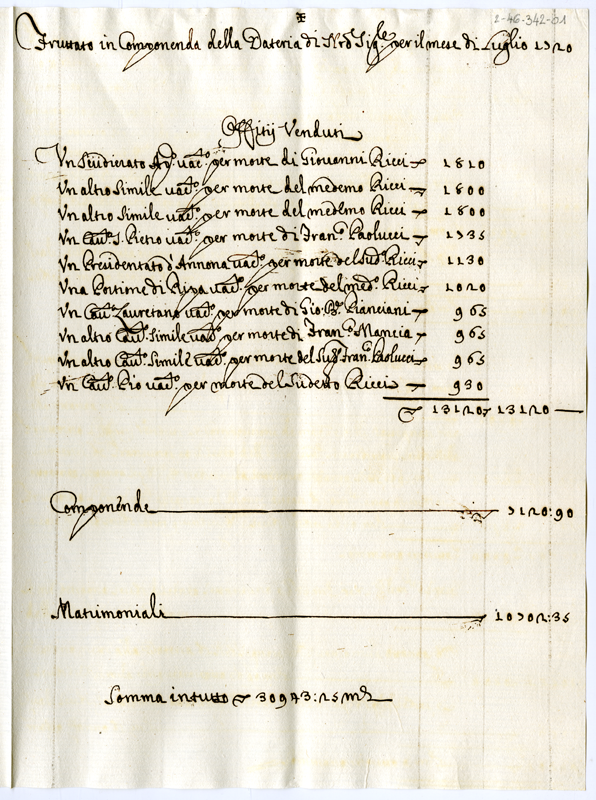 2-46-342-01
Fruttato in Componenda della Dateria di Nrõ Sig.re per il mese di Luglio 1720
Offitij Venduti
Vn Scudierato Ap. vac.to per morte di Giovanni Ricci 1810
Vn altro Simile vac.to per morte del medemo Ricci 1800
Vn altro Simile vac.to per morte del medemo Ricci 1800
Vn Cau.to S. Pietro vac.to per morte di Fran.co Paolucci 1735
Vn Presidentato d'Annona vac.to per morte del sud.o Ricci 1130
Vna Portione di Ripa vac.ta per morte del med.o Ricci 1020
Vn Cau.to Lauretano vac.to per morte di Gio: B.a Pianciani 965
Vn altro Cau.to Simile vac.to per morte di Fran.co Mancia 965
Vn altro Cau.to Simile vac.to per morte del Sig.r Fran.co Paolucci 965
Vn Cau.to Pio vac.to per morte del Sudetto Ricci 930
13120 13120
Componende 7120:90
Matrimoniali 10702:35
Somma in tutto 30943:25 m.ta